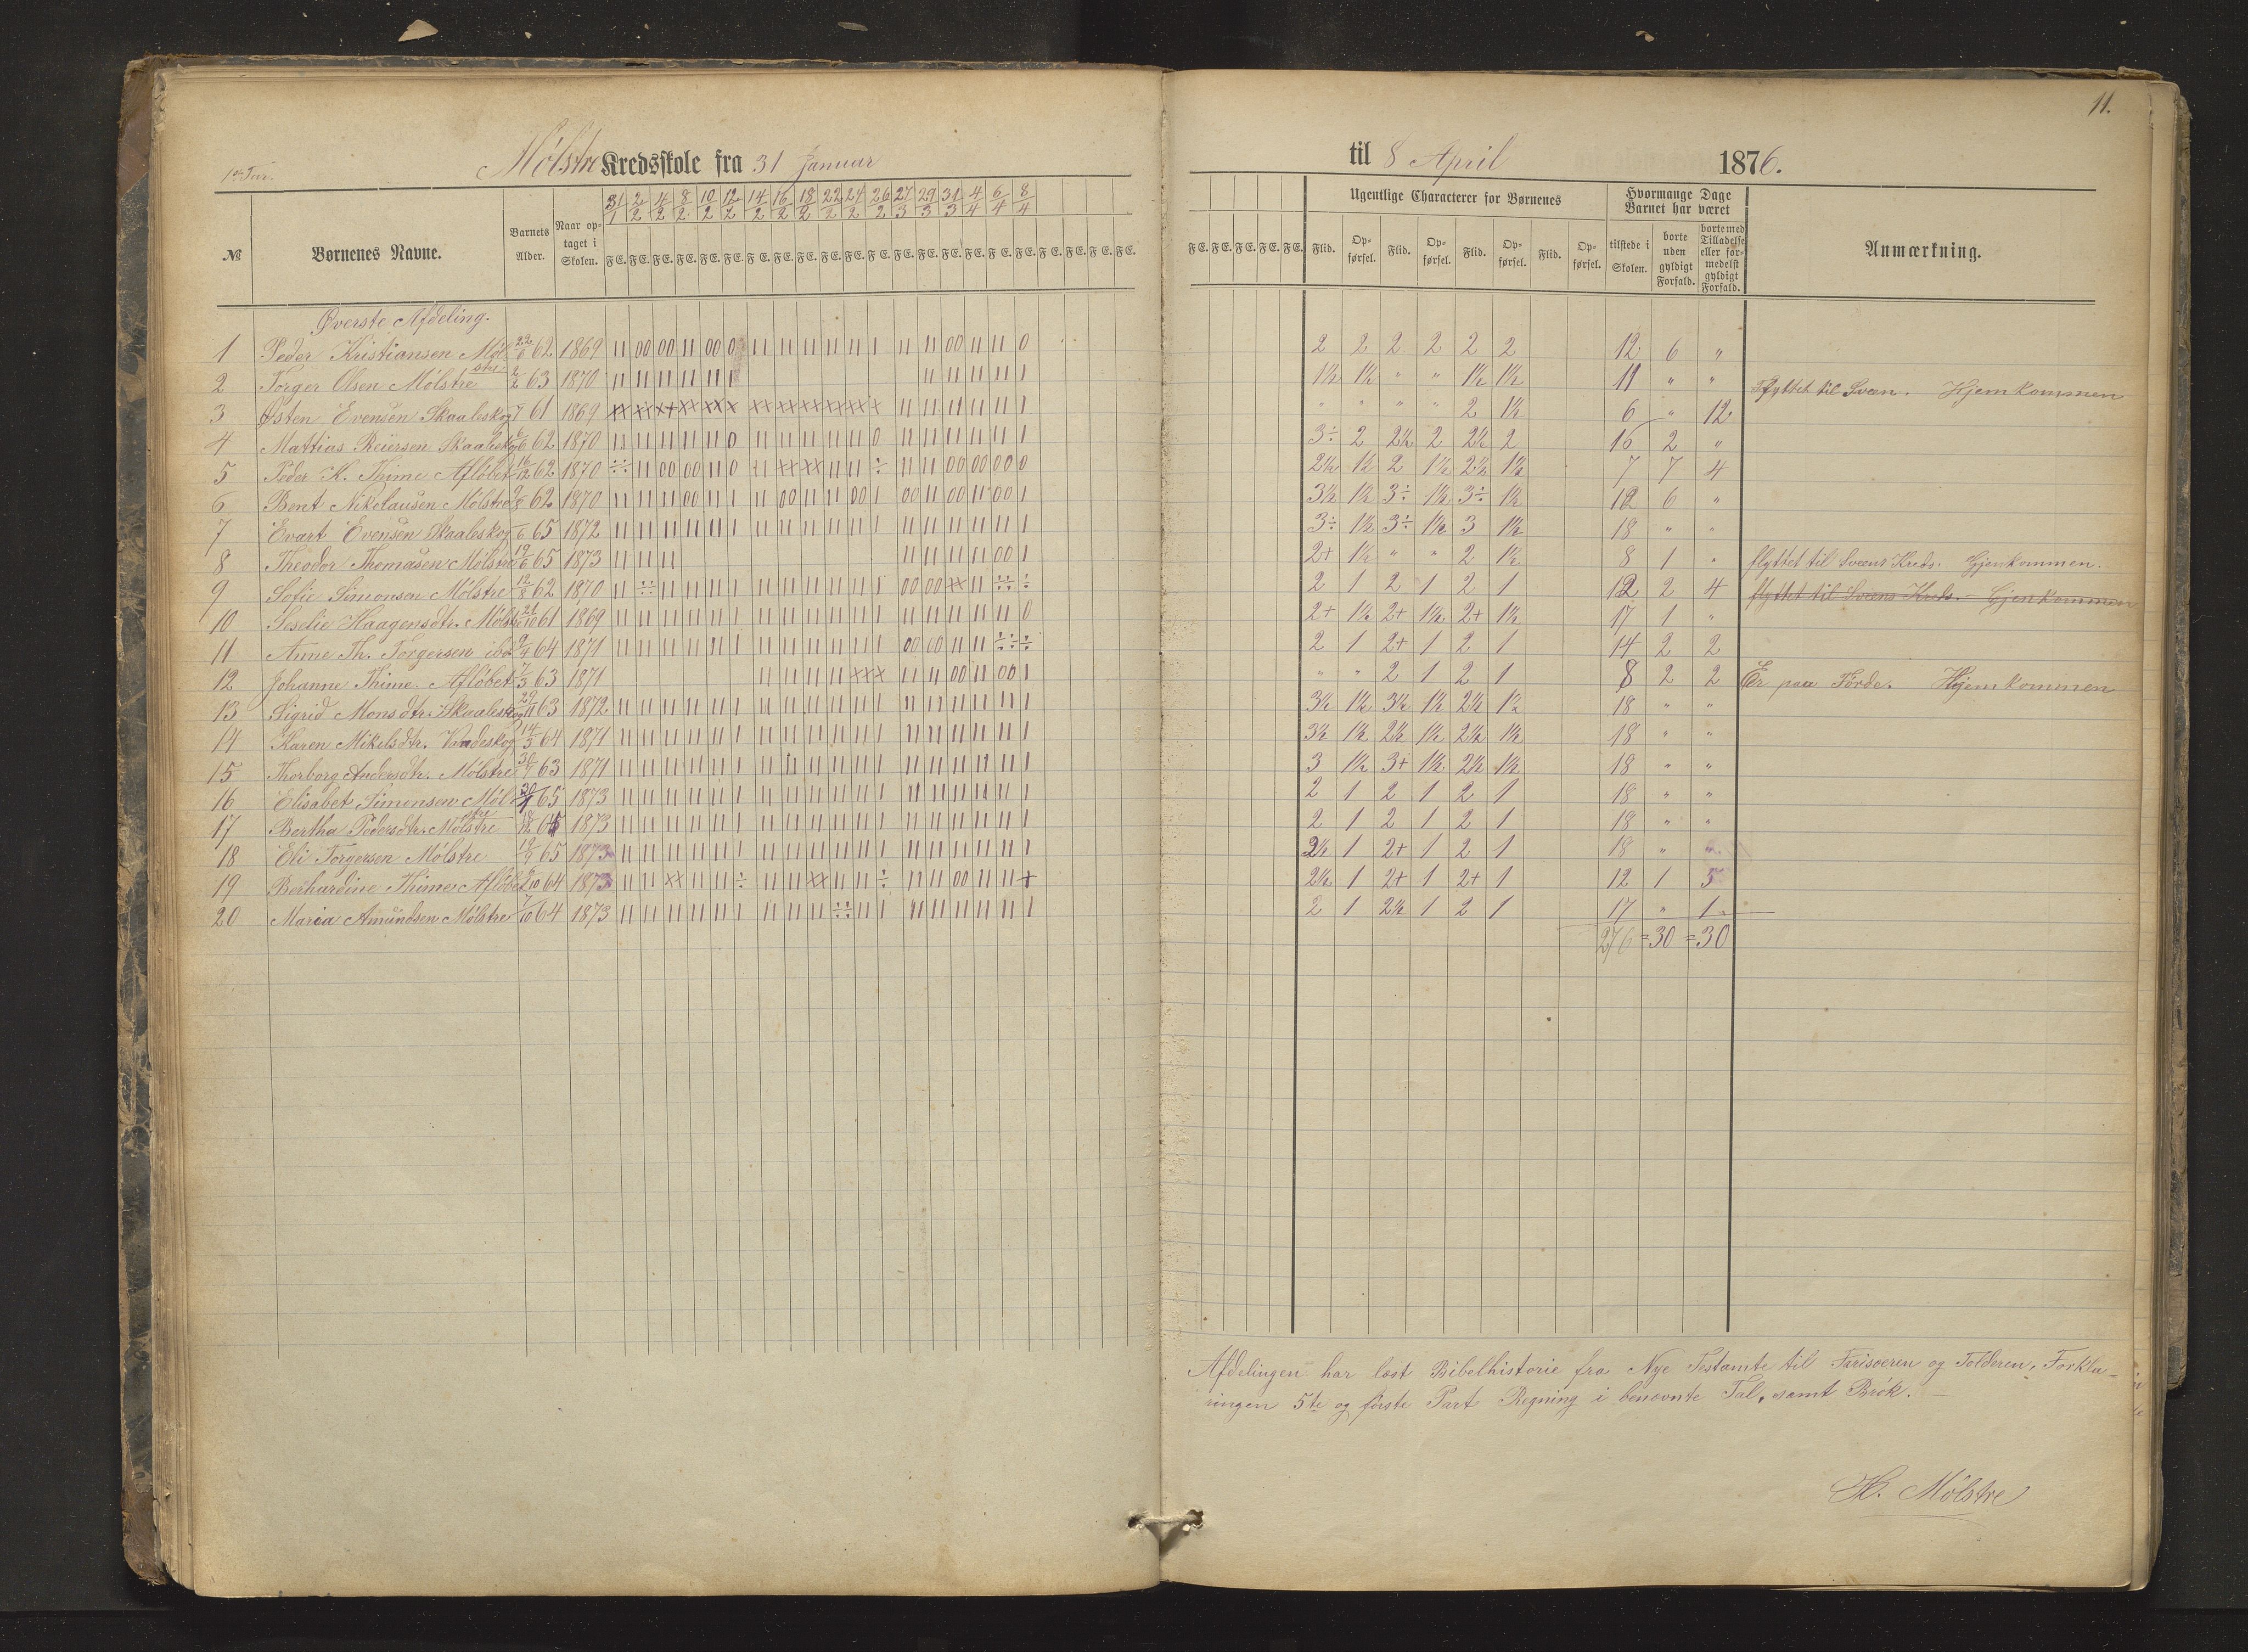 11.
1ste Tur. Mølstre Kredsskole fra 31 Januar til 8 April 1876.
№ Børnenes Navne. Barnets Alder. Naar optaget i Skolen. 31/1 2/2 4/2 8/2 10/2 12/2 14/2 16/2 18/2 22/2 24/2 26/2 27/3 29/3 31/3 4/4 6/4 8/4
F E. F E. F E. F E. F E. F E. F E. F E. F E. F E. F E. F E. F E. F E. F E. F E. F E. F E. F E. F E. F E. F E.
F E. F E. F E. F E. F E. Ugentlige Characterer for Børnenes Hvormange Dage Barnet har været Anmærkning.
Flid. Opførsel. Flid. Opførsel. Flid. Opførsel. Flid. Opførsel. tilstede i Skolen. borte uden gyldigt Forfald. borte med Tilladelse eller formedelst gyldigt Forfald.
Øverste Afdeling.
1 Peder Kristiansen Mølstre 22/6 62 1869 2 2 2 2 2 2 12 6 "
2 Torger Olsen Mølstre 2/2 63 1870 1½ 1½ " " 1½ 1½ 11 " " Flyttet til Sveen. Hjemkommen
3 Østen Evensen Skaaleskog 61 1869 " " " " 2 1½ 6 " 12
4 Mattias Reiersen Skaaleskog 62 1870 3÷ 2 2½ 2 2½ 2 16 2 "
5 Peder K. Thime Afløbet 16/12 62 1870 2½ 1½ 2 1½ 2½ 1½ 7 7 4
6 Bent Nikolausen Mølstre 62 1870 3½ 1½ 3÷ 1½ 3÷ 1½ 12 6 "
7 Evart Evensen Skaaleskog 65 1872 3÷ 1½ 3÷ 1½ 3 1½ 18 " "
8 Theodor Thomasen Mølstre 19/6 65 1873 2+ 1½ " " 2 1½ 8 1 " flyttet til Sveens Kreds. Hjemkommen.
9 Sofie Simonsen Mølstre 12/8 62 1870 2 1 2 1 2 1 12 2 4 flyttet til Sveens Kreds. - Hjemkommen
10 Seselie Haagensdtr. Mølstre 21/10 61 1869 2+ 1½ 2+ 1½ 2+ 1½ 17 1 "
11 Anne Th. Torgersen ibd 64 1871 2 1 2+ 1 2 1 14 2 2
12 Johanne Thime. Afløbet 7/3 63 1871 " " 2 1 2 1 8 2 2 Er paa Førde. Hjemkommen
13 Sigrid Monsdtr. Skaaleskog 29/11 63 1872 3½ 1½ 3½ 1½ 2½ 1½ 18 " "
14 Karen Mikelsdtr. Vandeskog 14/3 64 1871 3½ 1½ 2½ 1½ 2½ 1½ 18 " "
15 Thorborg Andersdtr. Mølstre 63 1871 3 1½ 3+ 1½ 2½ 1½ 18 " "
16 Elisabet Simonsen Mølstre 65 1873 2 1 2 1 2 1 18 " "
17 Bertha Pedersdtr. Mølstre 65 1873 2 1 2 1 2 1 18 " "
18 Eli Torgersen Mølstre 65 1873 2½ 1 2+ 1 2 1 18 " "
19 Berhardine Thime Afløbet 64 1873 2½ 1 2+ 1 2+ 1 12 1 5
20 Maria Amundsen Mølstre 7/10 64 1873 2 1 2½ 1 2 1 17 " 1
276 = 30 = 30
Afdelingen har læst Bibelhistorie fra Nye Testamte til Farisæeren og Tolderen, Forkla-
ringen 5te og første Part Regning i benævnte Tal, samt Brøk.
H. Mølstre